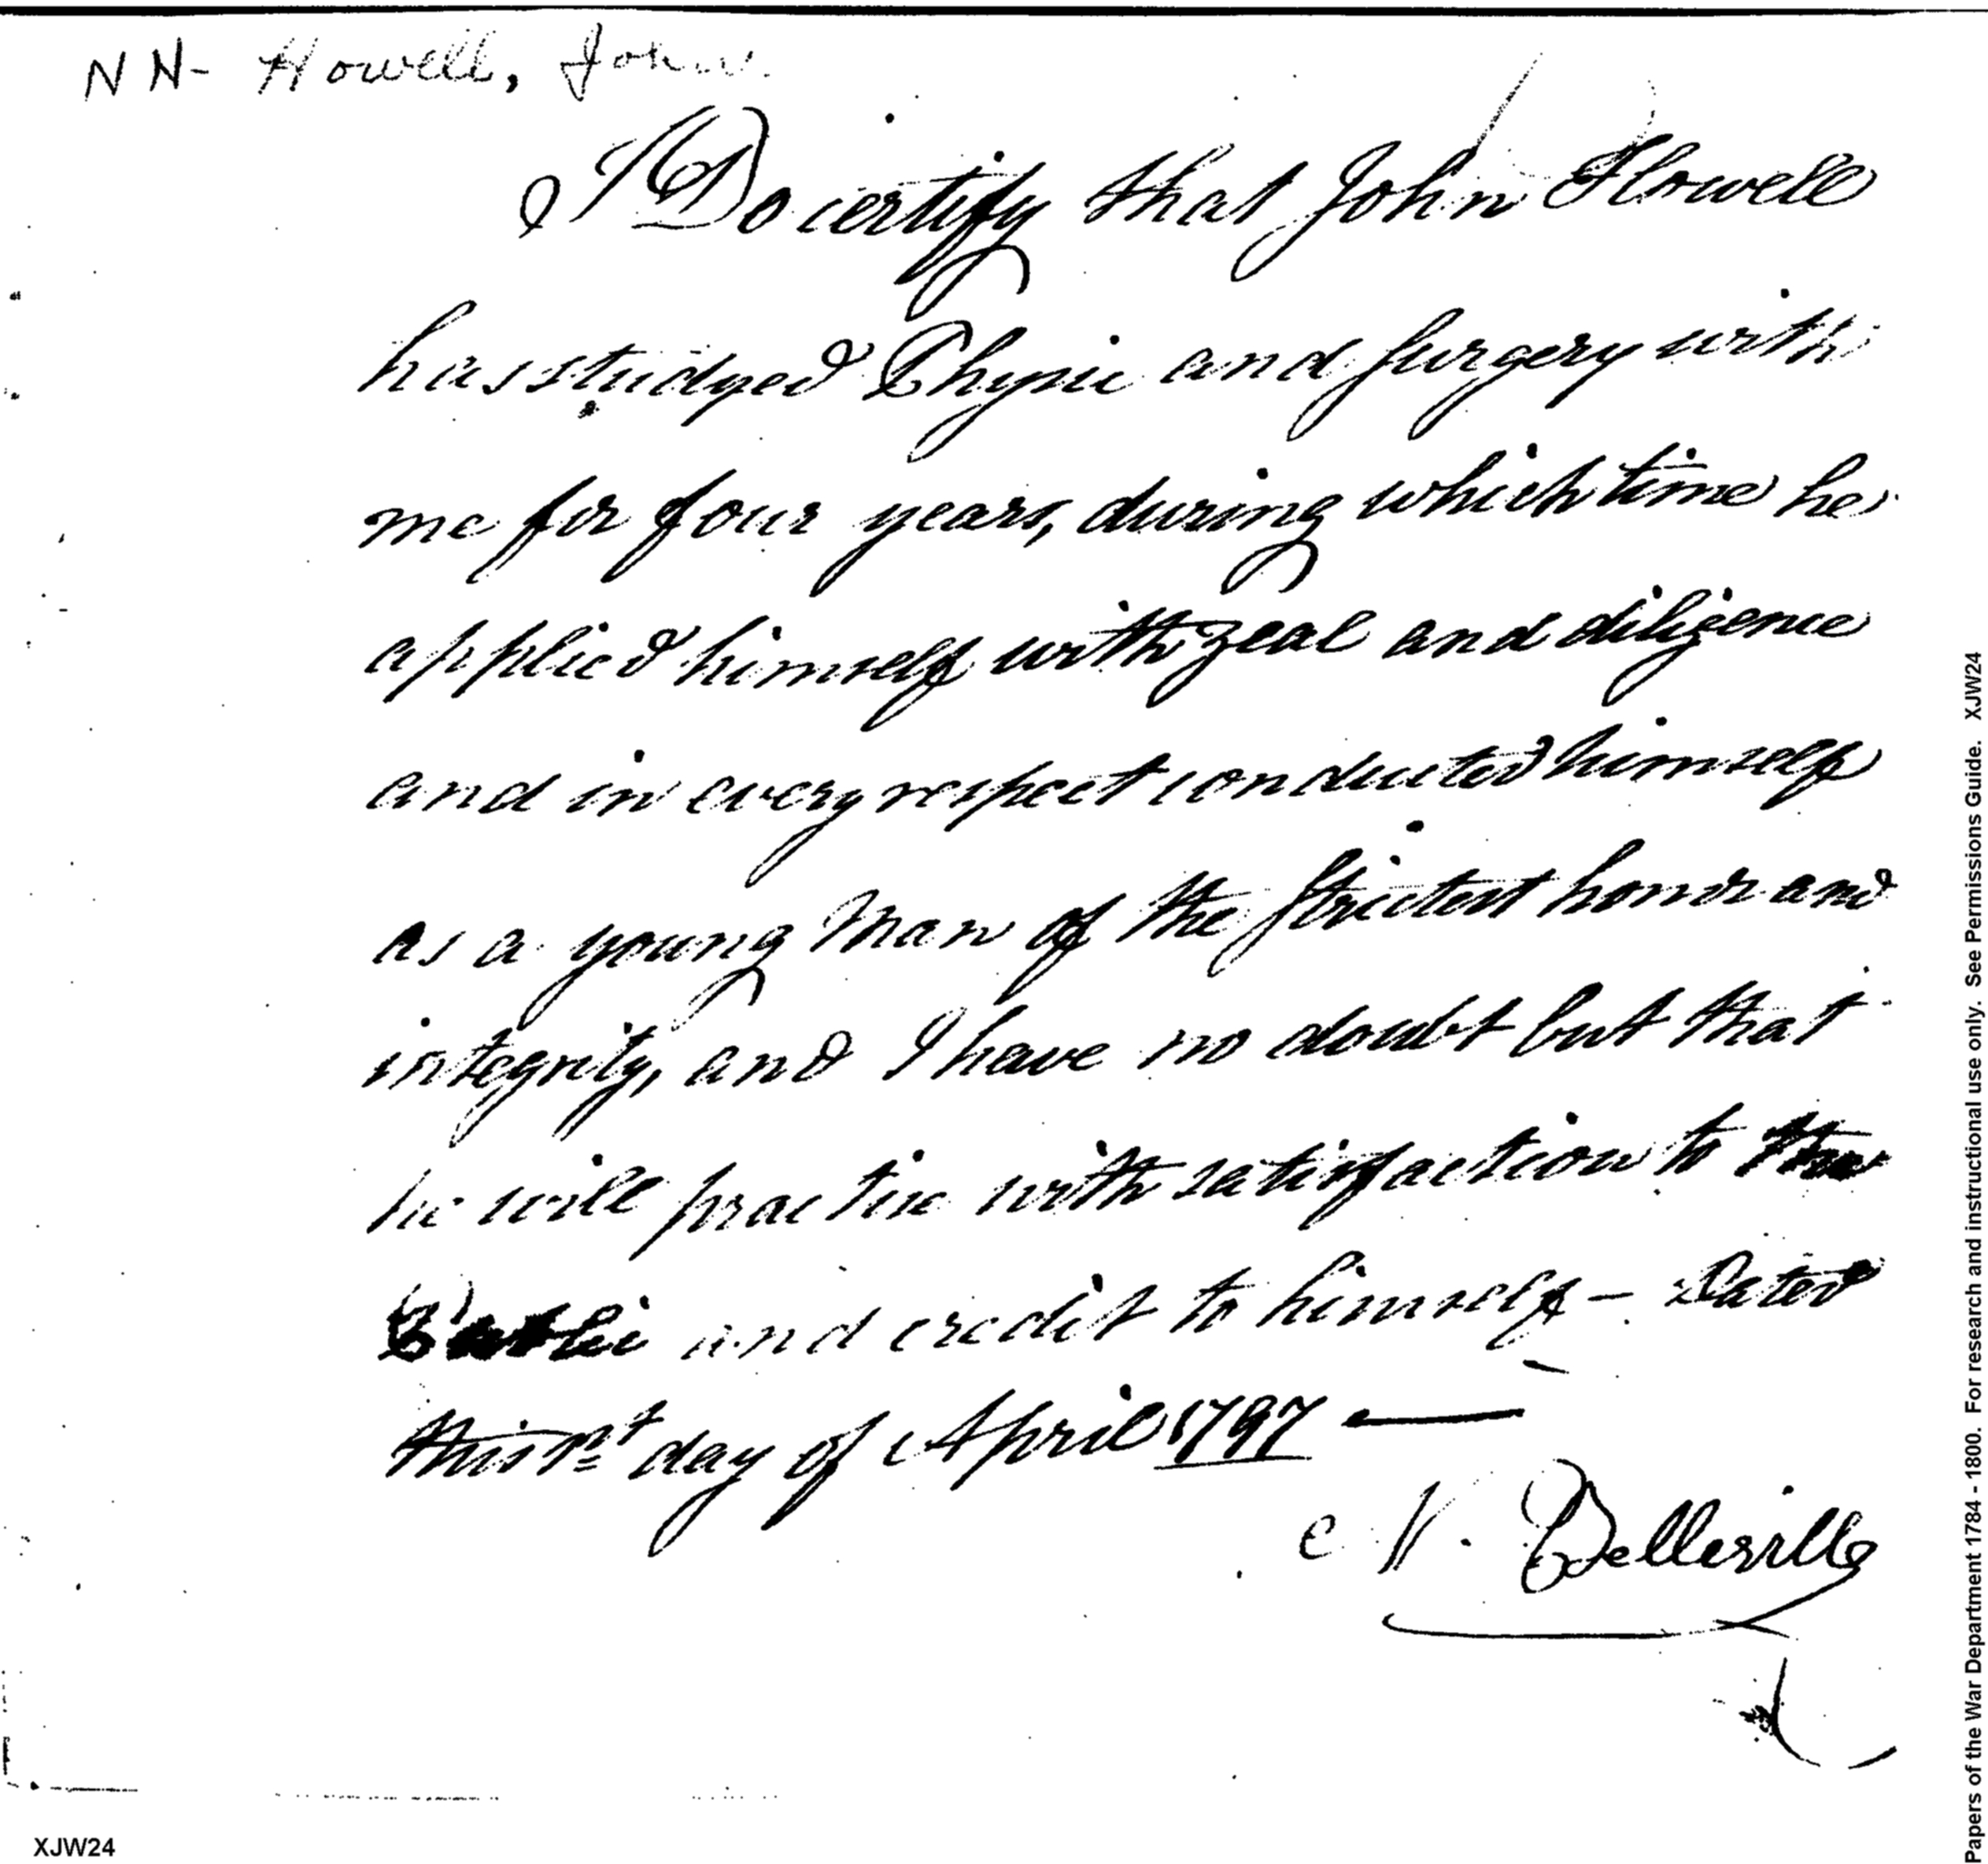 NN- Howell, John
I Do certify that John Howell
has studyed Physic and surgery with
me for four years, during which time he
applied himself with zeal and diligence
and in every respect conducted himself
as a young man of the strictest honor and
integrity, and I have no doubt but that
he will practice with satisfaction to the
and credit to himself – Dated
this 1st day of April 1797 —
N. Belleville
XJW24
Papers of the War Department 1784 - 1800. For research and instructional use only. See Permissions Guide. XJW24